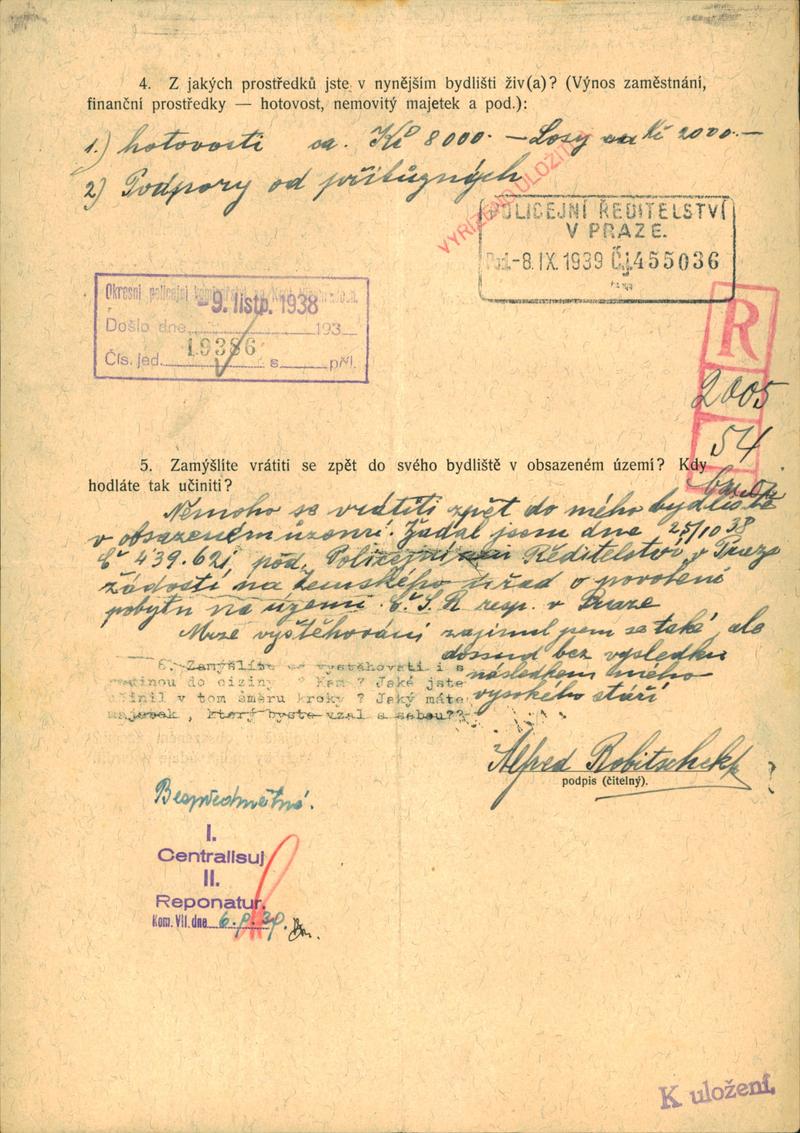 4. Z jakých prostředků jste v nynějším bydlišti živ(a)? (Výnos zaměstnání,
finanční prostředky — hotovost, nemovitý majetek a pod.):
1.) hotovosti ca. Kč 8000.- – Losy ca Kč 2000.—
2) Podpory od příbuzných
VYŘÍZENO ULOŽITI
POLICEJNÍ ŘEDITELSTVÍ
V PRAZE.
-8.IX.1939 Čj 455036
Okresní policejní
-9. listp. 1938
Došlo dne 193
Čís. jed. 19386 s příl.
R
2005
54
5. Zamýšlíte vrátiti se zpět do svého bydliště v obsazeném území? Kdy
hodláte tak učiniti?
Nemoho se vrátiti zpět do mého bydliště
v obsazeném území. Žádal jsem dne 25/10 38
Č 439.621 pod. Policejním Ředitelství v Praze
žádostí na Zemského úřad o povolení
pobytu na území Č.S.R resp. v Praze
Meze vyštěhování zajimul jsem se také, ale
dosud bez vysledku
následkem mého
vysokého stáří
6. Zamýšlíte se vystěhovati i s
rodinou do ciziny ? Kam ? Jaké jste
učinil v tom směru kroky ? Jaký máte
majetek , který byste vzal s sebou??
Alfred Robitschek
podpis (čitelný).
Bezpředmětné.
I.
Centralisuj
II.
Reponatur.
Kom. VII. dne 6.9.39.
K uložení.